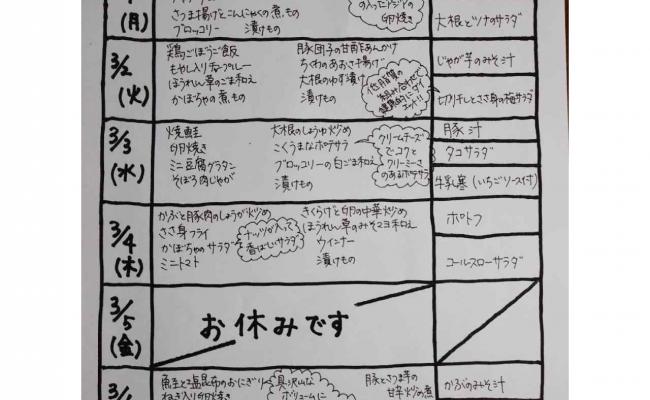 (月)
さつま揚げとこんにゃくの煮もの
ブロッコリー 漬けもの
の入ったアジアの
卵焼き
大根とツナのサラダ
3/2
(火)
鶏ごぼうご飯
もやし入り
ほうれん草のごま和え
かぼちゃの煮もの
豚団子の甘酢あんかけ
ちくわのあおさ揚げ
大根のゆず漬け
漬けもの
低脂質の
組み合せで
健康的にダイ
エット!!
じゃが芋のみそ汁
切り干しとささ身の梅サラダ
3/3
(水)
焼鮭
卵焼き
ミニ豆腐グラタン
そぼろ肉じゃが
大根のしょうゆ炒め
こくうまなポテサラ
ブロッコリーの白ごま和え
漬けもの
クリームチーズ
でコクと
クリーミーさ
のあるポテサラ
豚汁
タコサラダ
牛乳寒(いちごソース付)
3/4
(木)
かぶと豚肉のしょうが炒め
ささ身フライ
かぼちゃのサラダ
ミニトマト
ナッツが入って
香ばしいサラダ
きくらげと卵の中華炒め
ほうれん草のみそマヨ和え
ウインナー
漬けもの
ポトフ
コールスローサラダ
3/5
(金)
お休みです
鮭と塩昆布のおにぎり
ねぎ入り卵焼き
具沢山な
ボリュームに
豚とさつま芋の
甘辛炒め煮
かぶのみそ汁